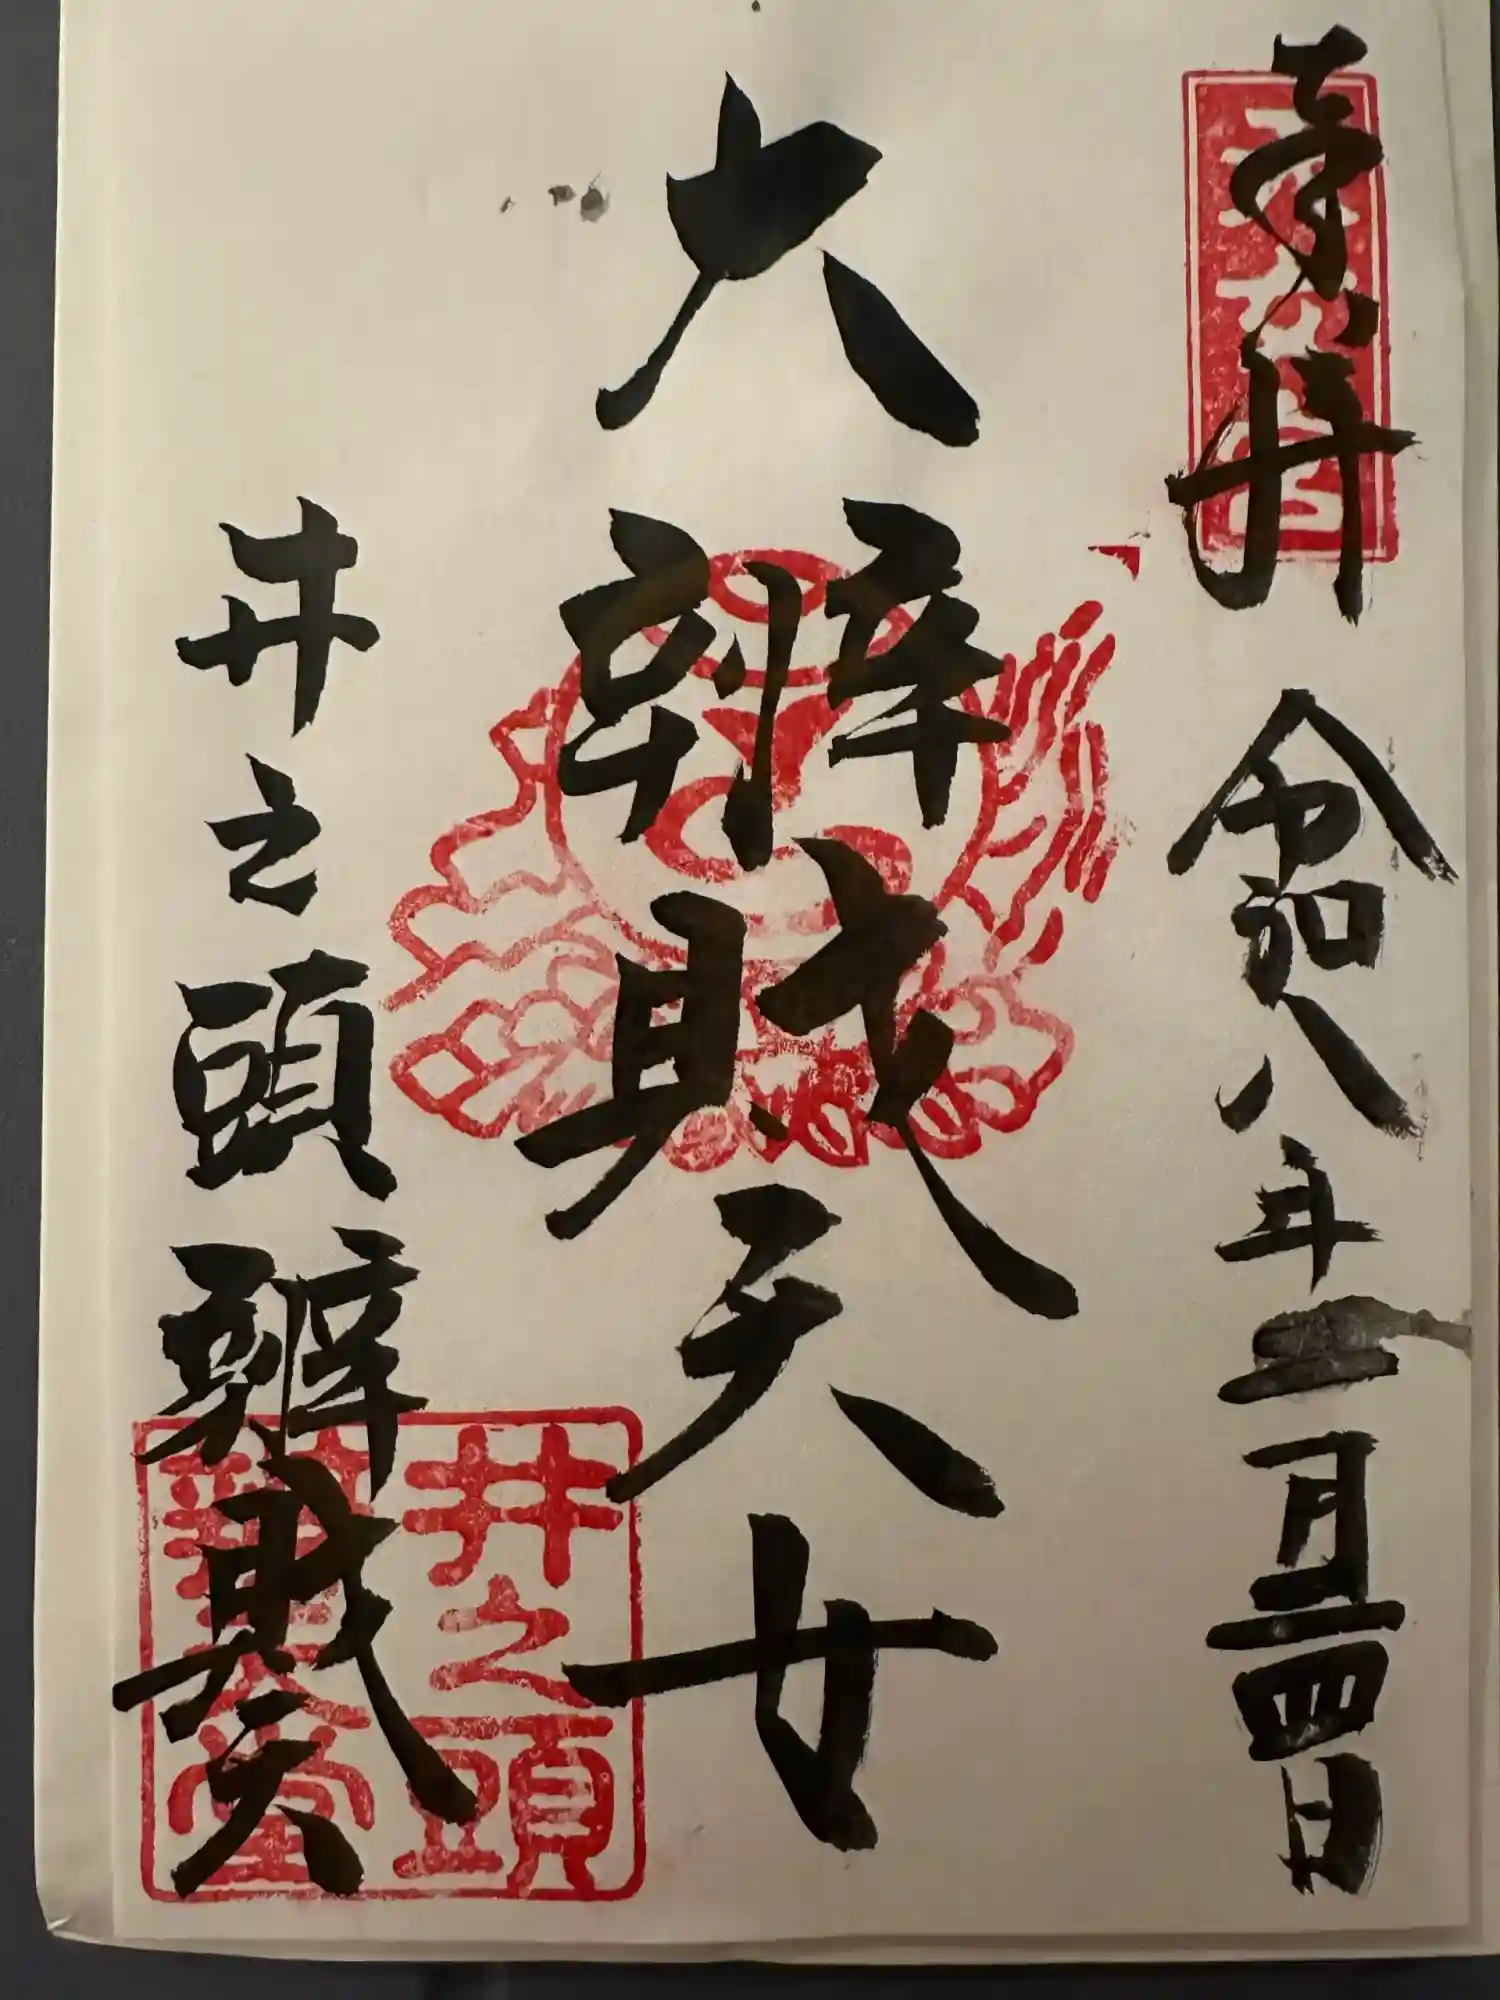 奉拝 令和八年二月二四日
大辨財天女
井之頭辨財天
井之頭
辨天堂